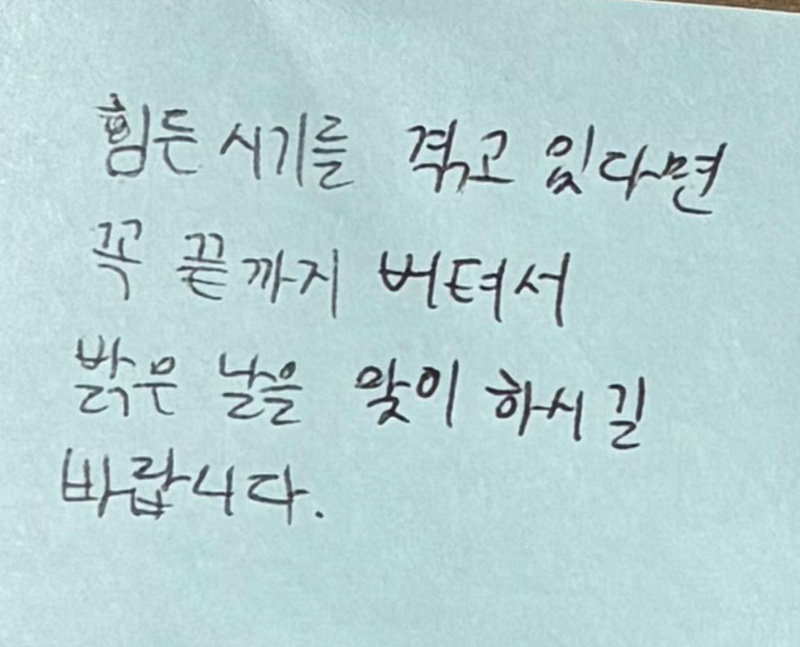 힘든 시기를 겪고 있다면
꼭 끝까지 버텨서
밝은 날을 맞이 하시길
바랍니다.